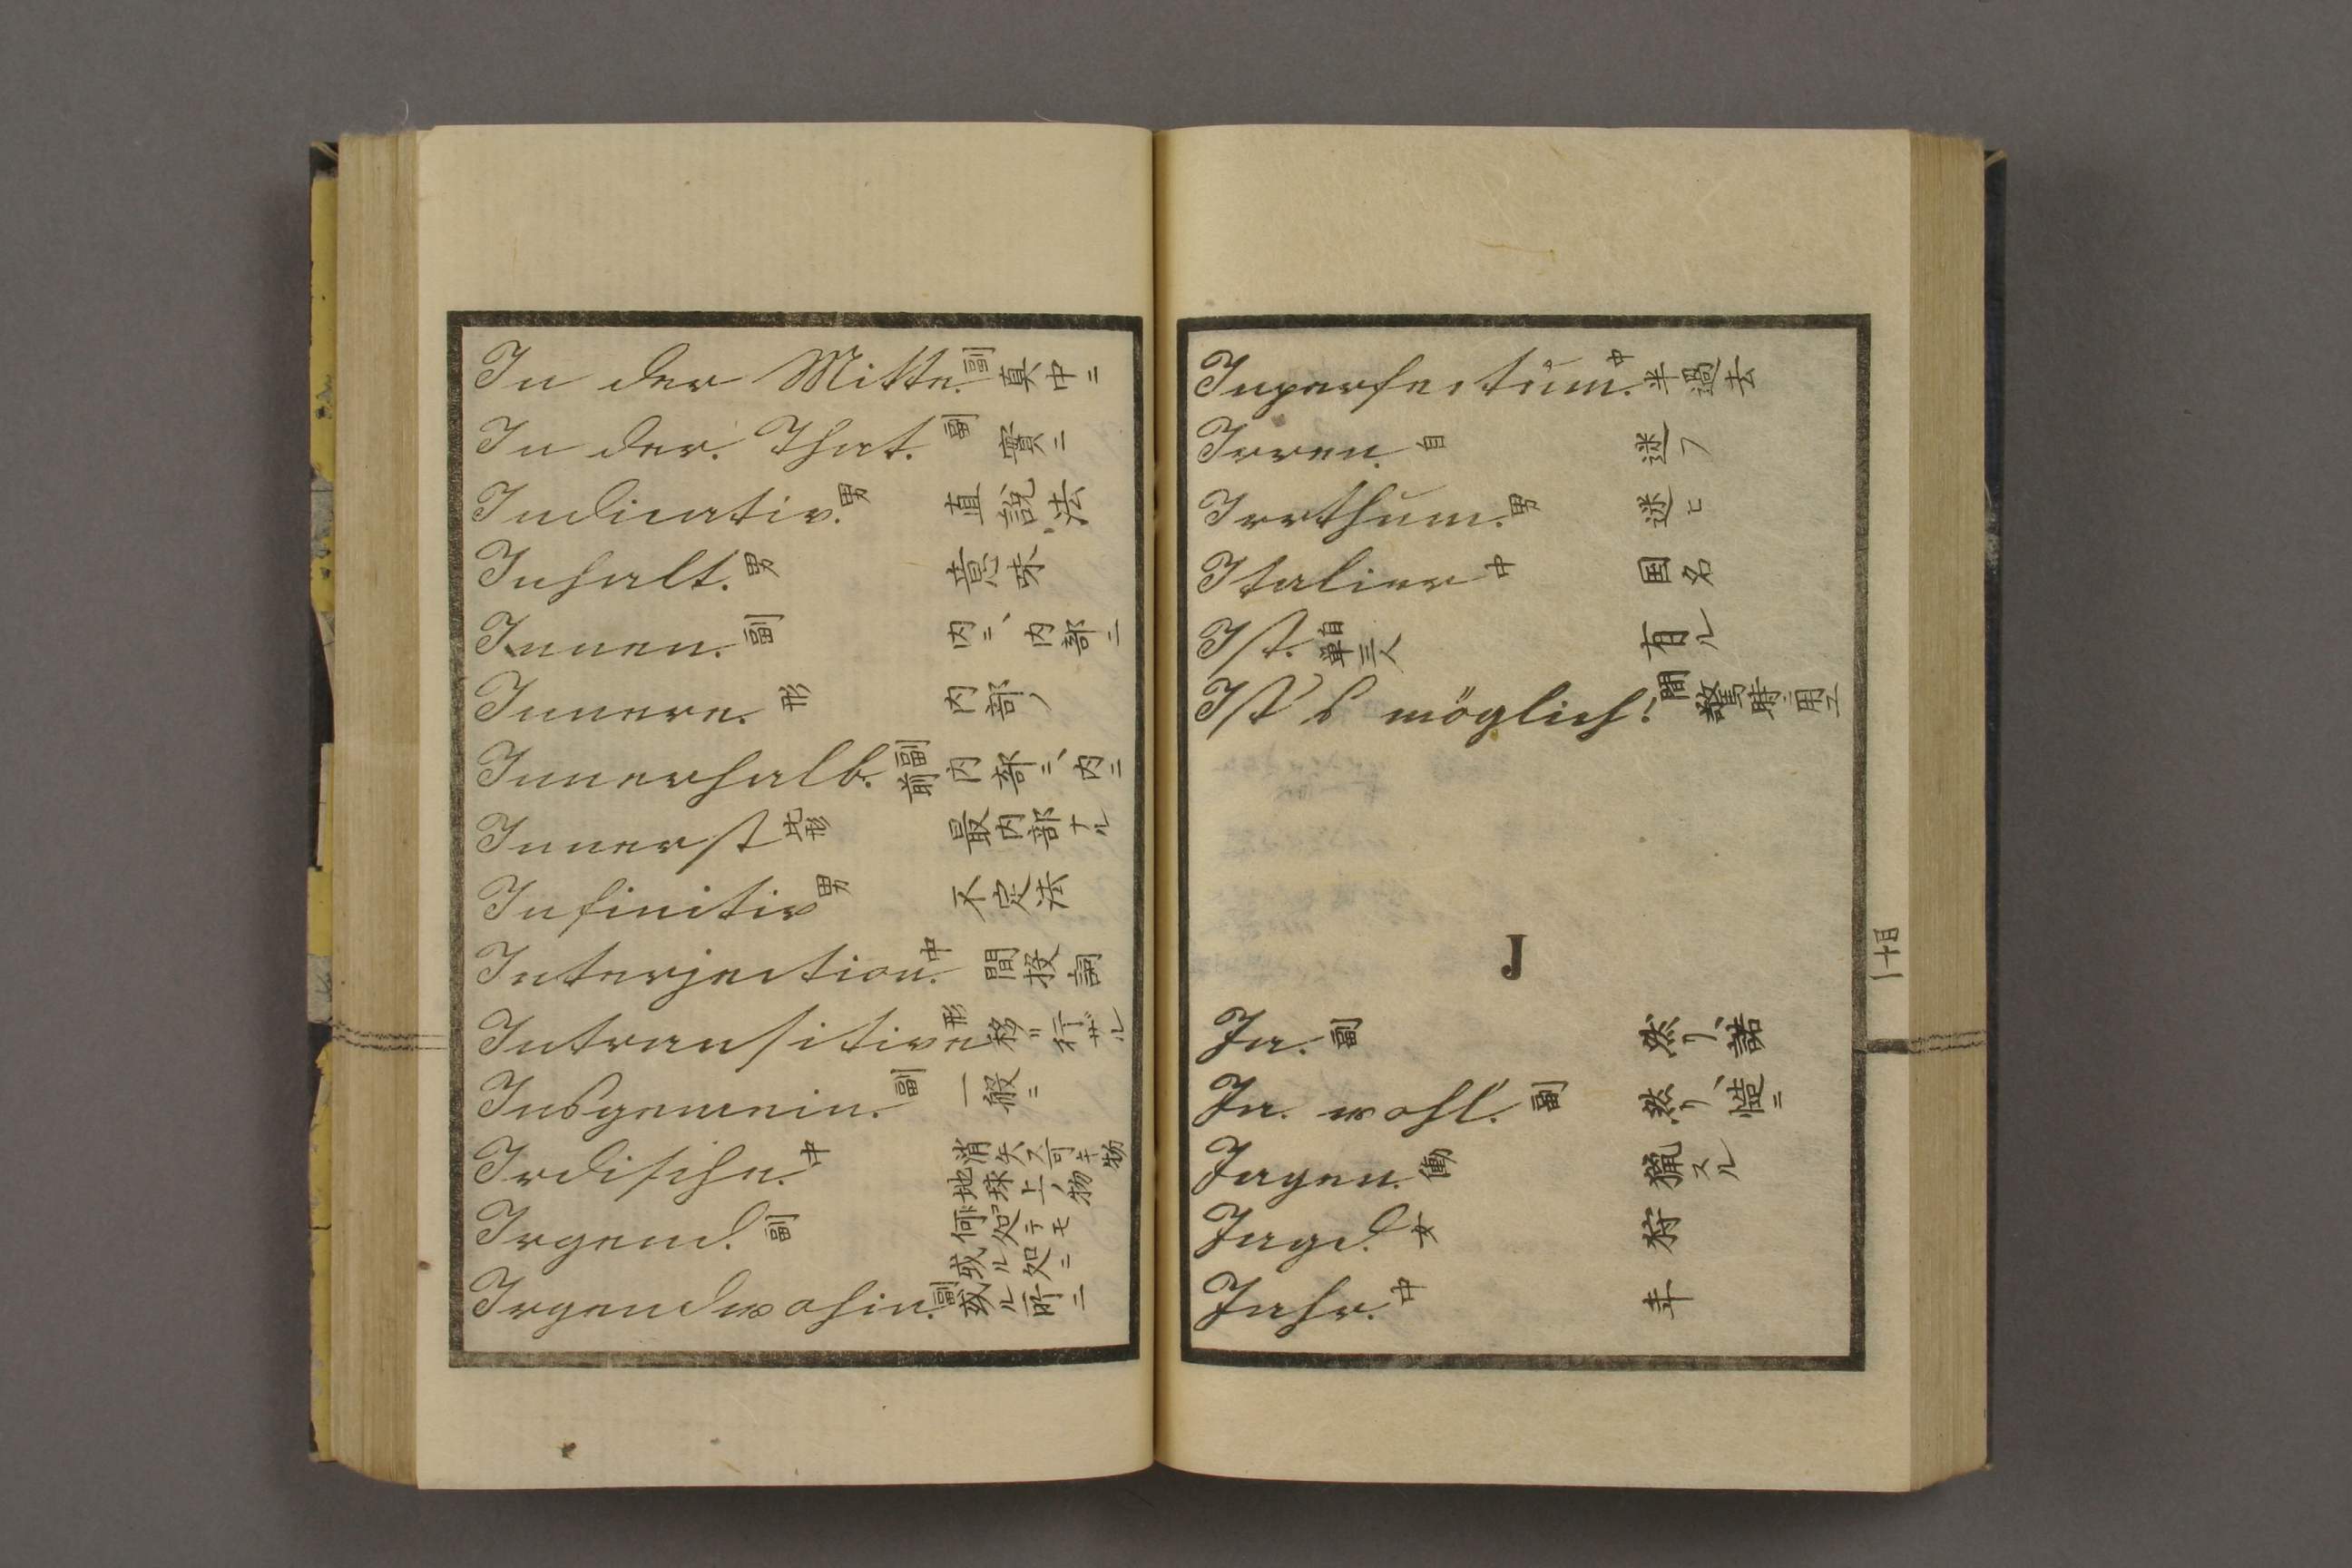 In der Mitte. 副 真中ニ
In der. That. 副 實ニ
Indicativ. 男 直說法
Inhalt. 男 意味
Innen. 副 内ニ、内部ニ
Innere. 形 内部ノ
Innerhalb. 副前 内部ニ、内ニ
Innerst 比形 最内部ナル
Infinitiv 男 不定法
Interjection. 中 間投詞
Intransitive 形 移リ行ザル
Insgemein. 副 一般ニ
Irdische. 中 消失ス可キ物 地球上ノ物
Irgend. 副 何処テモ 或ル処ニ
Irgendwohin. 副 或ル所ニ
Inperfectum. 中 半過去
Irren. 自 迷フ
Irrthum. 男 迷ヒ
Italien 中 国名
Ist. 自単三人 有ル
Ist's möglich! 間 驚時ニ用ユ
J
Ja. 副 然リ、諾
Ja. wohl. 副 然リ、慥ニ
Jagen. 働 猟スル
Jagd. 女 狩
Jahr. 中 年